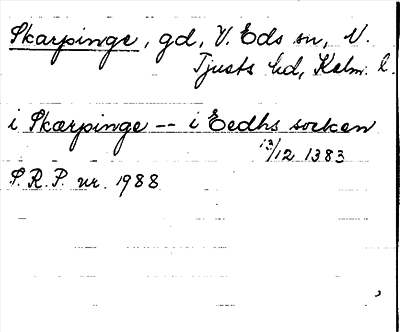 Skarpinge, gd, V. Eds sn, N.
Tjusts hd, Kalm. l.
i Skarpinge -- i Eedhs socken
13/12 1383
S.R.P. nr. 1988